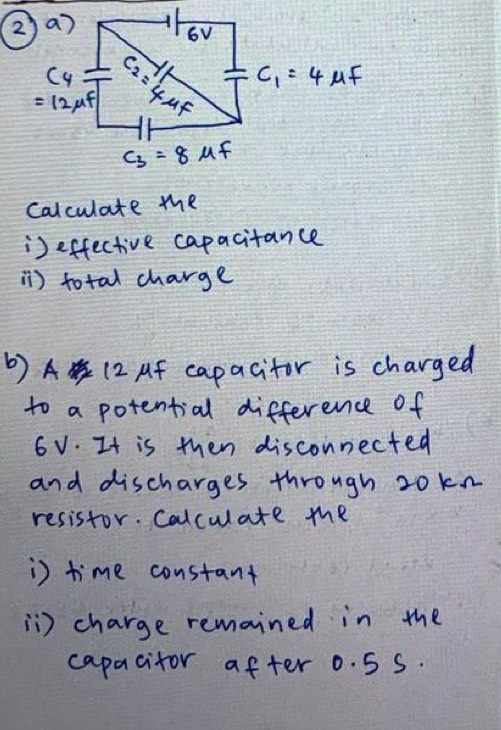 2) a)
6V
C4
= 12μf
C2 = 4μf
C1 = 4 μf
C3 = 8 μf
Calculate the
i) effective capacitance
ii) total charge
b) A 12 μf capacitor is charged
to a potential difference of
6V. It is then disconnected
and discharges through 20 kΩ
resistor. Calculate the
i) time constant
ii) charge remained in the
capacitor after 0.5 s.